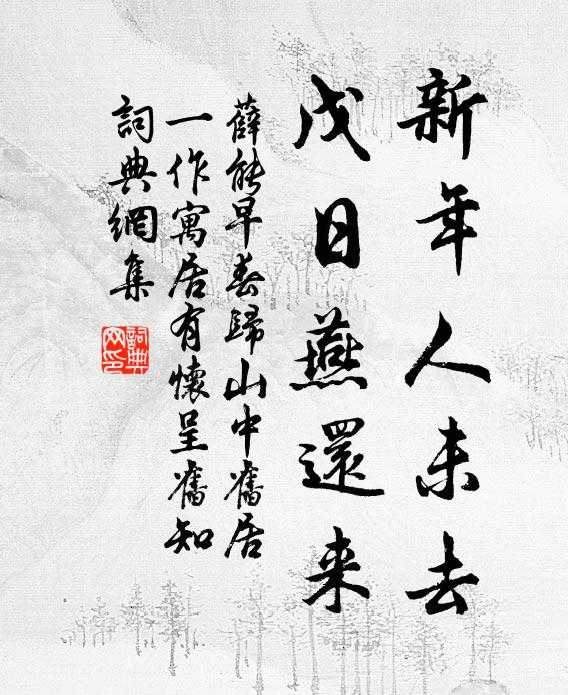 新年人未去
戊日燕還来
薛能早春歸山中舊居
一作寓居有懷呈舊知
詞典網集
詞典網印